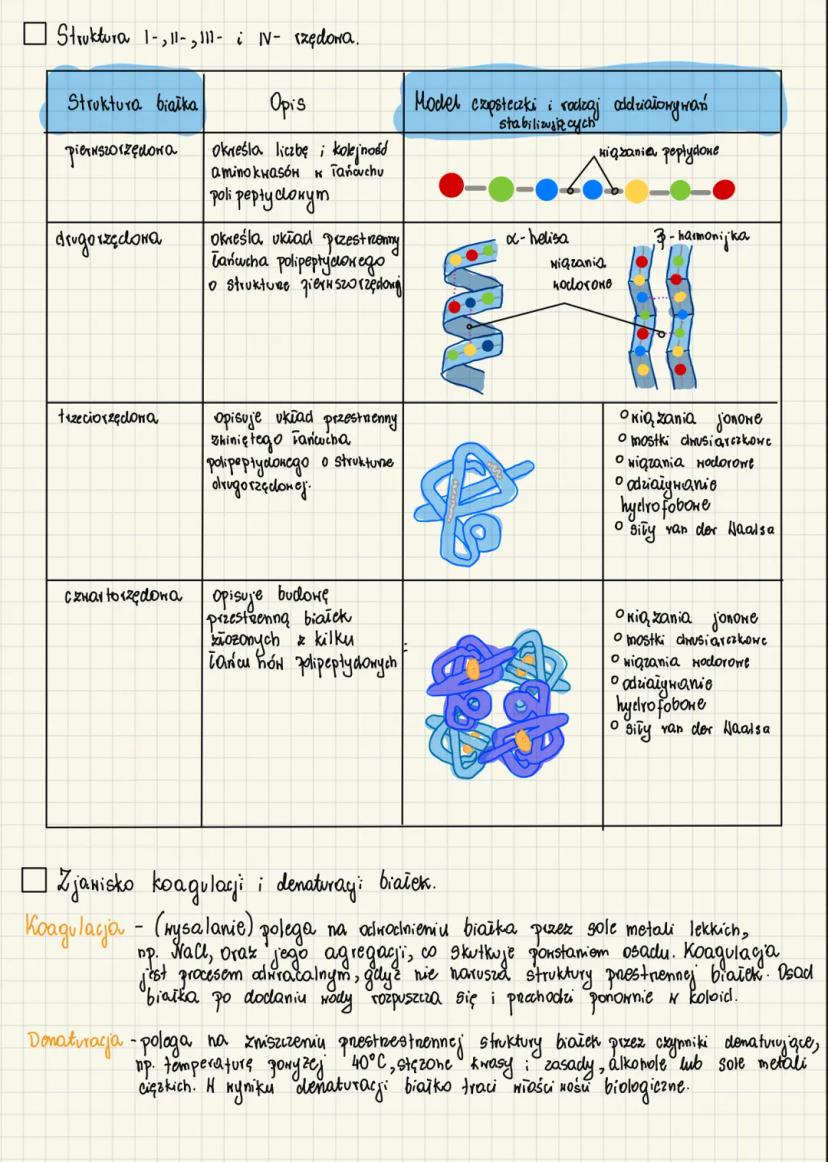 Struktura I-, II-, III- i IV- rzędowa.
Struktura białka
Opis
Model cząsteczki i rodzaj oddziaływań
stabilizujących
pierwszorzędowa
określa liczbę i kolejność
aminokwasów w łańcuchu
polipeptydowym
wiązania peptydowe
drugorzędowa
określa układ przestrzenny
łańcucha polipeptydowego
o strukturze pierwszorzędowej
α-helisa
wiązania
wodorowe
β-harmonijka
trzeciorzędowa
opisuje układ przestrzenny
zwiniętego łańcucha
polipeptydowego o strukturze
drugorzędowej.
wiązania jonowe
mostki dwusiarczkowe
wiązania wodorowe
odziaływanie
hydrofobowe
siły van der Waalsa
czwartorzędowa
opisuje budowę
przestrzenną białek
złozonych z kilku
łańcuchów polipeptydowych
wiązania jonowe
mostki dwusiarczkowe
wiązania wodorowe
odziaływanie
hydrofobowe
siły van der Waalsa
Zjawisko koagulacji i denaturacji białek.
Koagulacja - (wysalanie) polega na odwodnieniu białka przez sole metali lekkich,
np. NaCl, oraz jego agregacji, co skutkuje powstaniem osadu. Koagulacja
jest procesem odwracalnym, gdyż nie narusza struktury przestrzennej białek. Osad
białka po dodaniu wody rozpuszcza się i przechodzi ponownie w koloid.
Denaturacja - polega na zniszczeniu przestrzestrzennej struktury białek przez czynniki denaturujące,
np. temperaturę powyżej 40°C, stężone kwasy i zasady, alkohole lub sole metali
ciężkich. W wyniku denaturacji białko traci właściwości biologiczne.